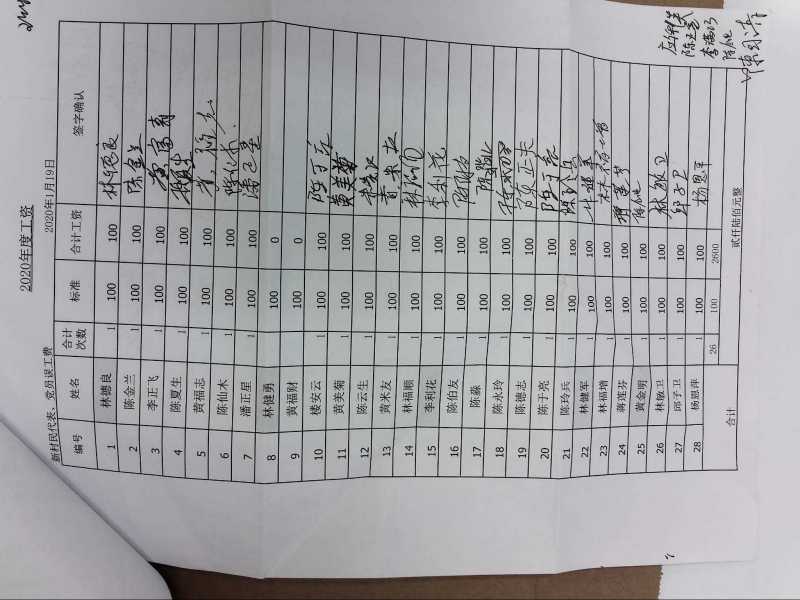 2020年度工资
新村民代表、党员误工费 2020年1月19日
编号 姓名 合计次数 标准 合计工资 签字确认
1 林德良 1 100 100 林德良
2 陈金兰 1 100 100 陈金兰
3 李正飞 1 100 100
4 陈夏生 1 100 100
5 黄福志 1 100 100
6 陈仙木 1 100 100
7 潘正星 1 100 100 潘正星
8 林健勇 100 0
9 黄福财 100 0
10 楼安云 1 100 100
11 黄美菊 1 100 100 黄美菊
12 陈云生 1 100 100
13 黄米友 1 100 100 黄米友
14 林福顺 1 100 100
15 李利花 1 100 100 李利花
16 陈伯友 1 100 100
17 陈淼 1 100 100
18 陈永玲 1 100 100
19 陈德志 1 100 100
20 陈于亮 1 100 100 陈于亮
21 陈玲兵 1 100 100 陈玲兵
22 林健军 1 100 100
23 林福增 1 100 100
24 蒋莲芬 1 100 100
25 黄金明 1 100 100
26 林敏卫 1 100 100 林敏卫
27 邱子卫 1 100 100 邱子卫
28 杨恩萍 1 100 100 杨恩平
26 100 2600
合计 贰仟陆佰元整